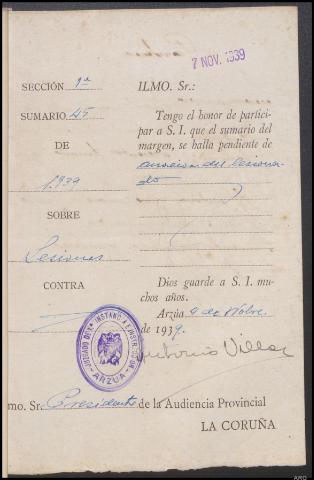 7 NOV. 1939
SECCIÓN 1ª
SUMARIO 45
DE
1.939
SOBRE
Lesiones
CONTRA
ILMO. Sr.:
Tengo el honor de partici-
par a S. I. que el sumario del
margen, se halla pendiente de
del lesiona-
do
Dios guarde a S. I. mu-
chos años.
Arzúa de
de 1939.
JUZGADO DE 1ª INSTANCIA E INSTRUCCIÓN
ARZÚA
Antonio Villar
mo. Sr. Presidente de la Audiencia Provincial
LA CORUÑA